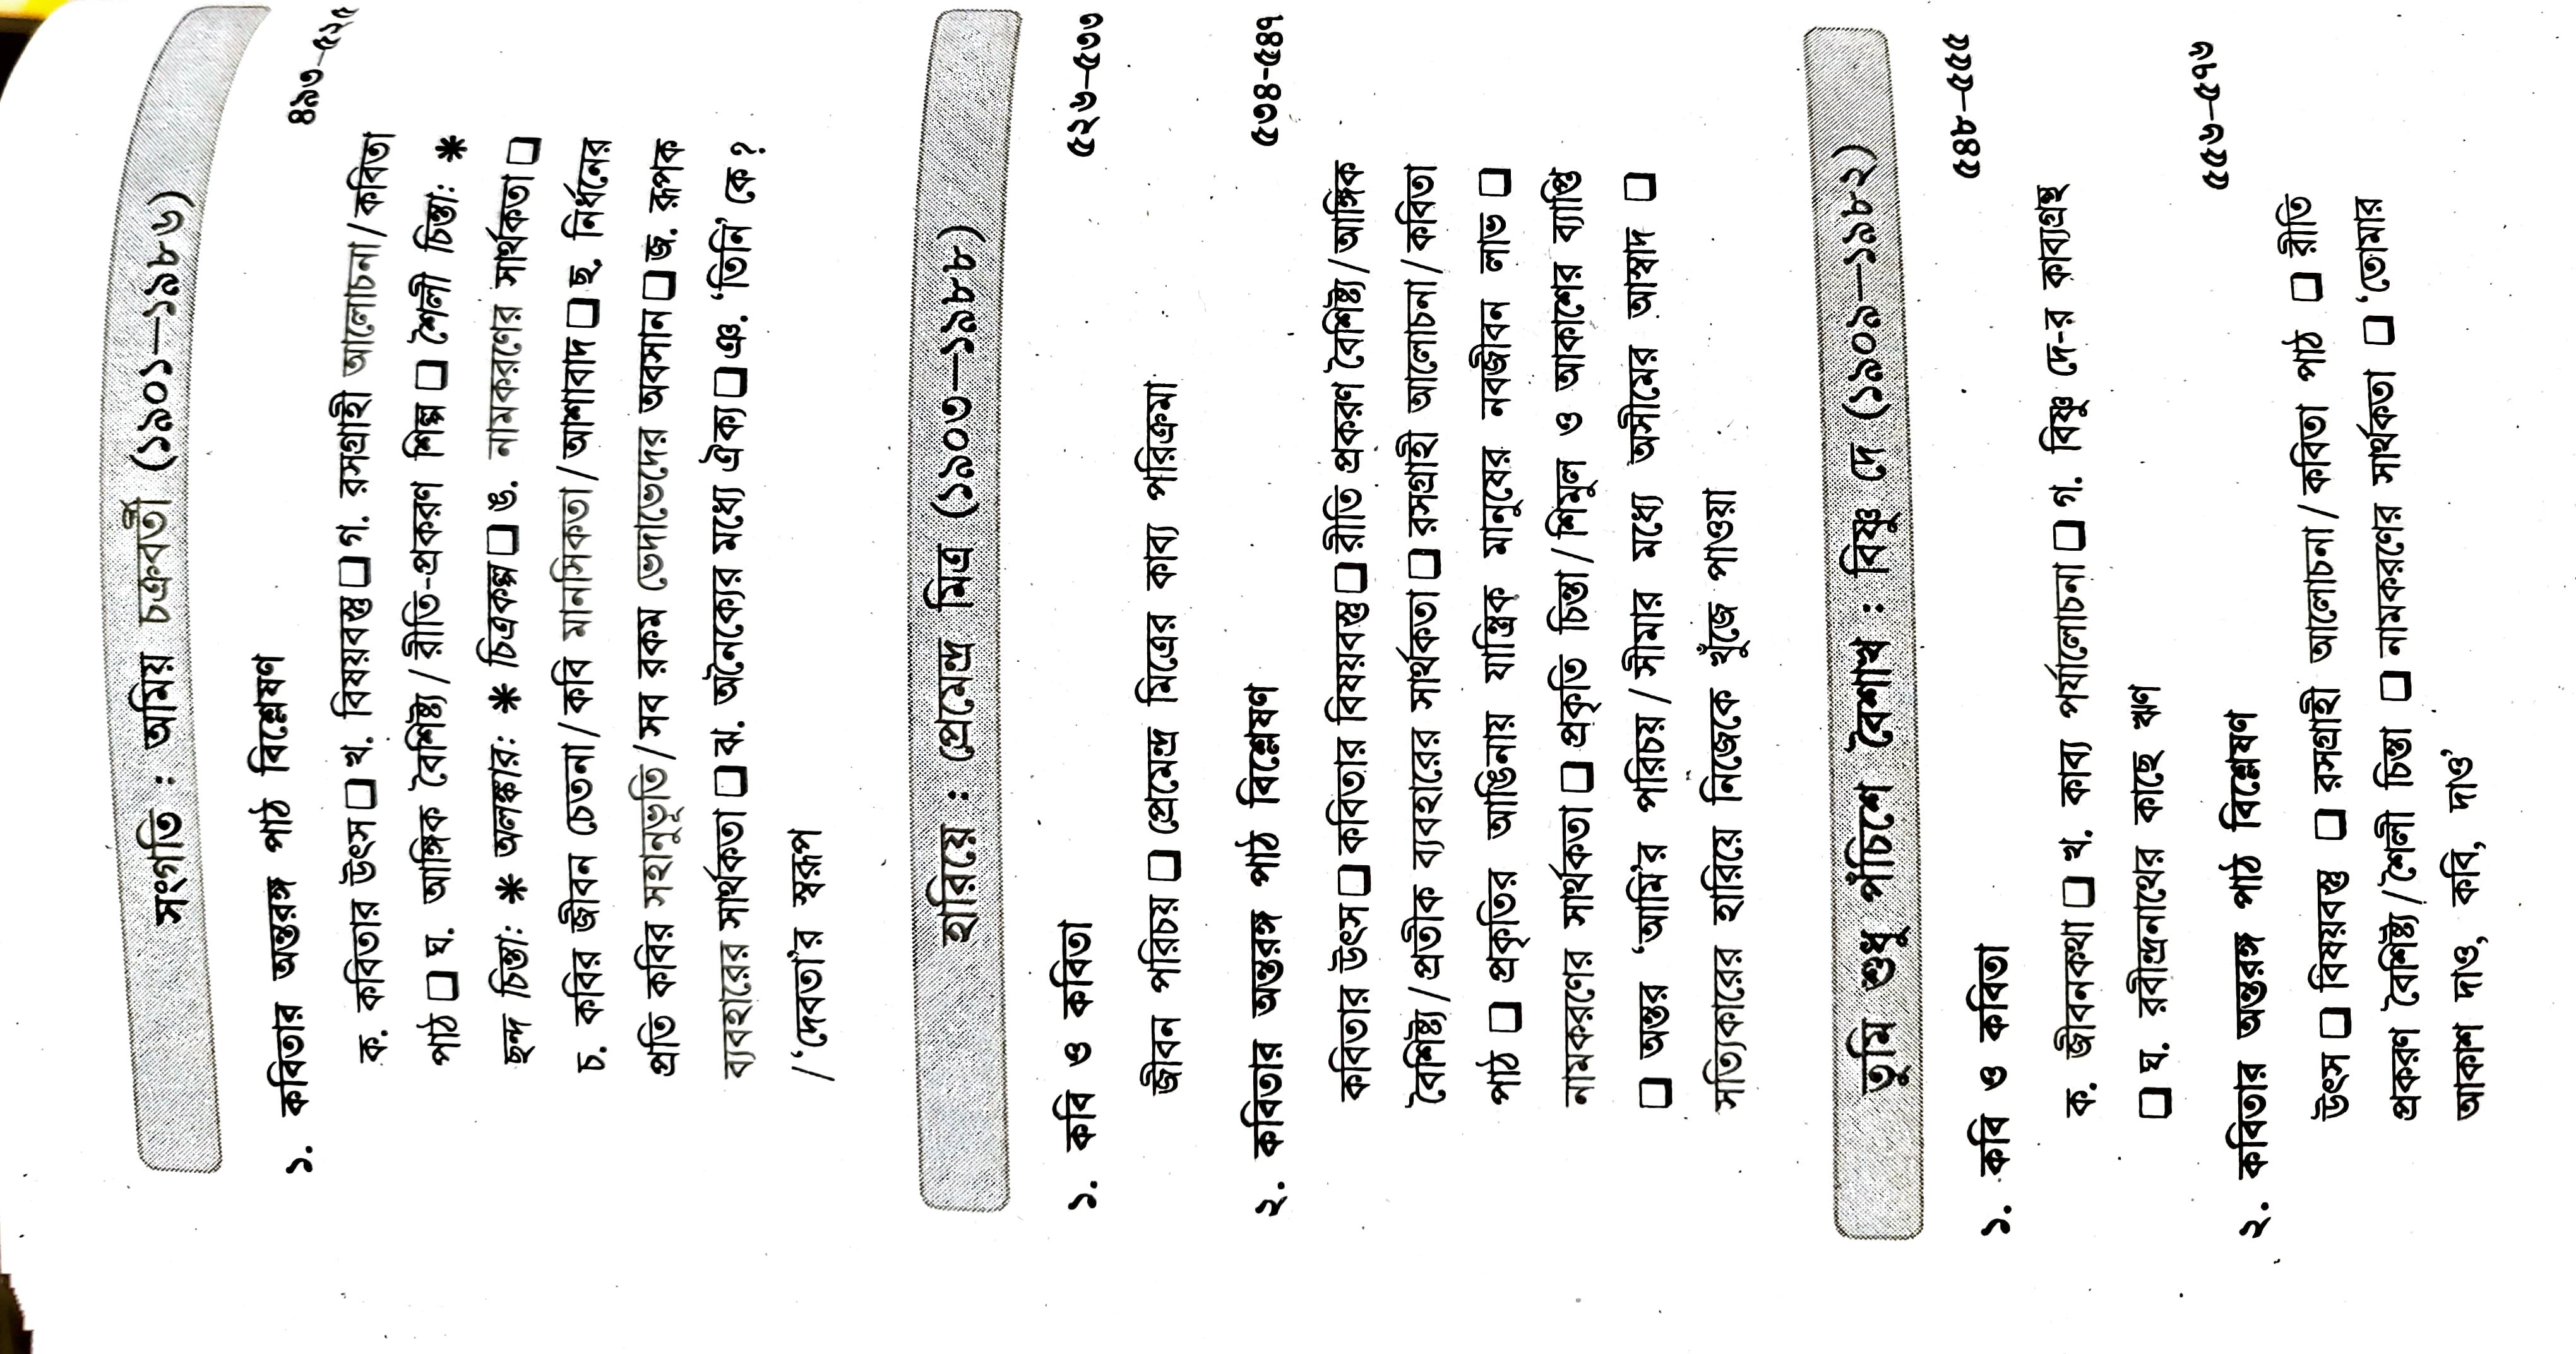 সংগতি : অমিয় চক্রবর্তী (১৯০১—১৯৮৬)
১. কবিতার অন্তরঙ্গ পাঠ বিশ্লেষণ ৪৯৩–৫২৫
ক. কবিতার উৎস ❑ খ. বিষয়বস্তু ❑ গ. রসগ্রাহী আলোচনা / কবিতা
পাঠ ❑ ঘ. আঙ্গিক বৈশিষ্ট্য / রীতি-প্রকরণ শিল্প ❑ শৈলী চিন্তা: ✱
ছন্দ চিন্তা: ✱ অলঙ্কার: ✱ চিত্রকল্প ❑ ঙ. নামকরণের সার্থকতা ❑
চ. কবির জীবন চেতনা / কবি মানসিকতা / আশাবাদ ❑ ছ. নির্ধনের
প্রতি কবির সহানুভূতি / সব রকম ভেদাভেদের অবসান ❑ জ. রূপক
ব্যবহারের সার্থকতা ❑ ঝ. অনৈক্যের মধ্যে ঐক্য ❑ ঞ. ‘তিনি’ কে ?
/ ‘দেবতা’র স্বরূপ
হারিয়ে : প্রেমেন্দ্র মিত্র (১৯০৩—১৯৮৮)
১. কবি ও কবিতা ৫২৬–৫৩৩
জীবন পরিচয় ❑ প্রেমেন্দ্র মিত্রের কাব্য পরিক্রমা
২. কবিতার অন্তরঙ্গ পাঠ বিশ্লেষণ ৫৩৪-৫৪৭
কবিতার উৎস ❑ কবিতার বিষয়বস্তু ❑ রীতি প্রকরণ বৈশিষ্ট্য / আঙ্গিক
বৈশিষ্ট্য / প্রতীক ব্যবহারের সার্থকতা ❑ রসগ্রাহী আলোচনা / কবিতা
পাঠ ❑ প্রকৃতির আঙিনায় যান্ত্রিক মানুষের নবজীবন লাভ ❑
নামকরণের সার্থকতা ❑ প্রকৃতি চিন্তা / শিমুল ও আকাশের ব্যাপ্তি
❑ অন্তর ‘আমি’র পরিচয় / সীমার মধ্যে অসীমের আস্বাদ ❑
সত্যিকারের হারিয়ে নিজেকে খুঁজে পাওয়া
তুমি শুধু পঁচিশে বৈশাখ : বিষ্ণু দে (১৯০৯—১৯৮২)
১. কবি ও কবিতা ৫৪৮–৫৫৫
ক. জীবনকথা ❑ খ. কাব্য পর্যালোচনা ❑ গ. বিষ্ণু দে-র কাব্যগ্রন্থ
❑ ঘ. রবীন্দ্রনাথের কাছে ঋণ
২. কবিতার অন্তরঙ্গ পাঠ বিশ্লেষণ ৫৫৬–৫৭৬
উৎস ❑ বিষয়বস্তু ❑ রসগ্রাহী আলোচনা / কবিতা পাঠ ❑ রীতি
প্রকরণ বৈশিষ্ট্য / শৈলী চিন্তা ❑ নামকরণের সার্থকতা ❑ ‘তোমার
আকাশ দাও, কবি, দাও’